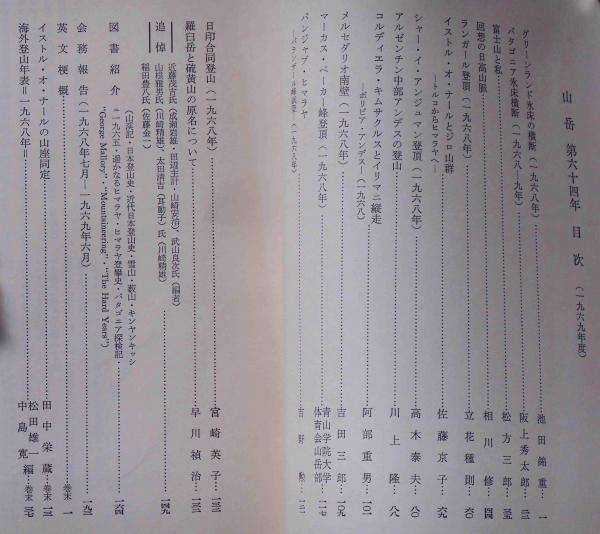 山岳 第六十四年 目次 (一九六九年度)
グリーンランド氷床の横断(一九六八年)……池田錦重…一
パタゴニア氷床横断(一九六八—九年)……阪上秀太郎…三
富士山と私……松方三郎…
回想の日高山脈……相川修…四四
ランガール登頂(一九六八年)……立花種則…六〇
イストル・オ・ナールとジロ山群
―トルコからヒマラヤへ―……佐藤京子…六九
シャー・イ・アンジュマン登頂(一九六八年)……高木泰夫…八〇
アルゼンチン中部アンデスの登山……川上隆…八八
コルディエラ・キムサクルスとイリマニ縦走
―ボリビア・アンデス―(一九六八)……阿部重男…一〇一
メルセダリオ南壁(一九六八年)……吉田三郎…一〇九
マーカス・ベーカー峰登頂(一九六八年)……青山学院大学
体育会山岳部…一一七
パンジャブ・ヒマラヤ
日印合同登山(一九六八年)……宮崎英子…一三三
羅臼岳と硫黄山の原名について……早川禎治…一三三
追悼……一四九
近藤茂吉氏(成瀬岩雄・田辺主計・山崎安治)、武山良次氏(編者)
山根雅男氏(川崎精雄)、太田清吉(耳動子)氏(川崎精雄)
稲田豊八氏(佐藤金一)
図書紹介……一六四
(山渓記・日本登山史・近代日本登山史・雪山・薮山・キンヤンキッシ
"一九六五・遥かなるヒマラヤ・ヒマラヤ登攀史・パタゴニア探検記・
"George Mallory"・"Mountaineering"・"The Hard Years")
会務報告(一九六八年七月—一九六九年六月)……一九二
英文梗概……巻末 一
イストル・オ・ナールの山座同定……田中栄蔵…巻末
海外登山年表=一九六八年=……松田雄一
中島寛編…巻末